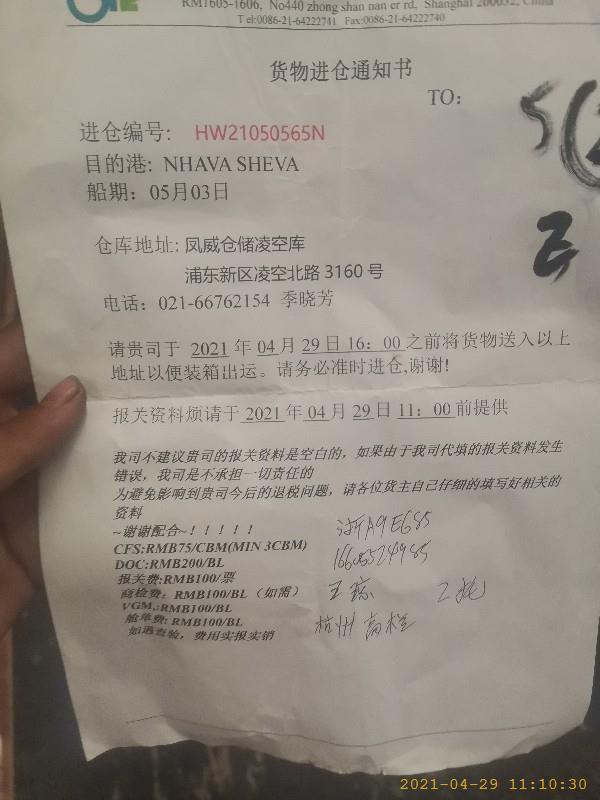 RM1605-1606, No440 zhong shan nan er rd, Shanghai 200032, China
Tel:0086-21-64222741 Fax:0086-21-64222740
货物进仓通知书
TO:
进仓编号: HW21050565N
目的港: NHAVA SHEVA
船期: 05月03日
仓库地址: 凤威仓储凌空库
浦东新区凌空北路 3160 号
电话: 021-66762154 季晓芳
请贵司于 2021 年 04 月 29 日 16: 00 之前将货物送入以上
地址以便装箱出运。请务必准时进仓,谢谢!
报关资料烦请于 2021 年 04 月 29 日 11: 00 前提供
我司不建议贵司的报关资料是空白的，如果由于我司代填的报关资料发生
错误，我司是不承担一切责任的
为避免影响到贵司今后的退税问题，请各位货主自己仔细的填写好相关的
资料
~谢谢配合~！！！！！
CFS:RMB75/CBM(MIN 3CBM)
DOC:RMB200/BL
报关费:RMB100/票
商检费: RMB100/BL（如需）
VGM,:RMB100/BL
舱单费: RMB100/BL
如遇查验，费用实报实销
浙A9E685
王琼
2托
杭州
5
2021-04-29 11:10:30